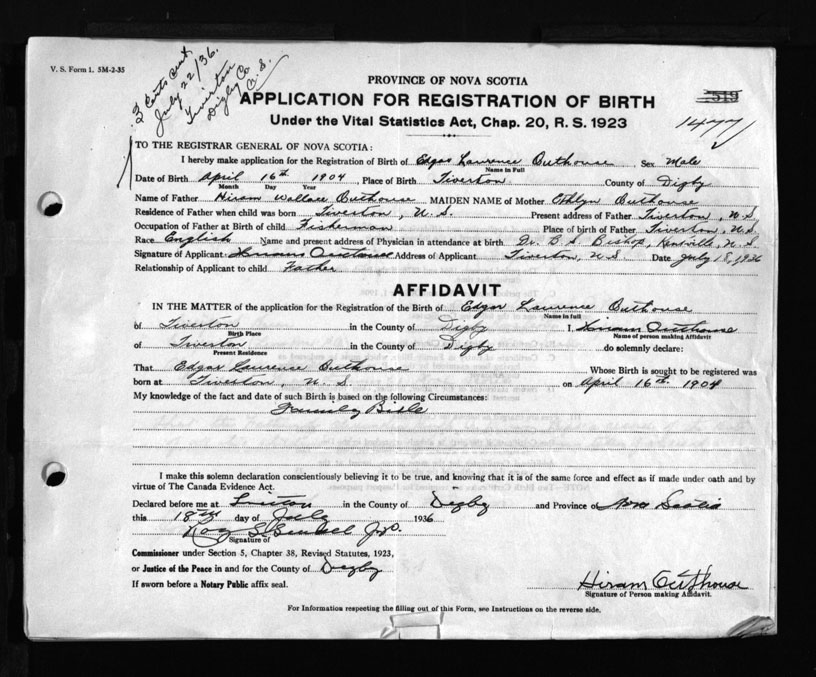 V. S. Form 1. 5M-2-35
July 22/36.
Tiverton
Digby Co.
N. S.
PROVINCE OF NOVA SCOTIA
519
APPLICATION FOR REGISTRATION OF BIRTH
Under the Vital Statistics Act, Chap. 20, R. S. 1923
1477
TO THE REGISTRAR GENERAL OF NOVA SCOTIA:
I hereby make application for the Registration of Birth of Edgar Lawrence Outhouse Sex Male
Name in Full
Date of Birth April 16th 1904, Place of Birth Tiverton County of Digby
Month Day Year
Name of Father Hiram Wallace Outhouse MAIDEN NAME of Mother Outhouse
Residence of Father when child was born Tiverton, N.S. Present address of Father Tiverton, N.S.
Occupation of Father at Birth of child Fisherman Place of birth of Father Tiverton, N.S.
Race English Name and present address of Physician in attendance at birth Dr. B. S. Bishop, Kentville, N.S.
Signature of Applicant Hiram Outhouse Address of Applicant Tiverton, N.S. Date July 18, 1936
Relationship of Applicant to child Father
AFFIDAVIT
IN THE MATTER of the application for the Registration of the Birth of Edgar Lawrence Outhouse
Name in full
of Tiverton in the County of Digby I, Hiram Outhouse
Birth Place Name of person making Affidavit
of Tiverton in the County of Digby do solemnly declare:
Present Residence
That Edgar Lawrence Outhouse Whose Birth is sought to be registered was
born at Tiverton, N.S. on April 16th 1904
My knowledge of the fact and date of such Birth is based on the following Circumstances:
Family Bible
I make this solemn declaration conscientiously believing it to be true, and knowing that it is of the same force and effect as if made under oath and by
virtue of The Canada Evidence Act.
Declared before me at in the County of Digby and Province of Nova Scotia
this 18th day of July 1936
Signature of
Commissioner under Section 5, Chapter 38, Revised Statutes, 1923,
or Justice of the Peace in and for the County of Digby
If sworn before a Notary Public affix seal.
Hiram Outhouse
Signature of Person making Affidavit.
For Information respecting the filling out of this Form, see Instructions on the reverse side.